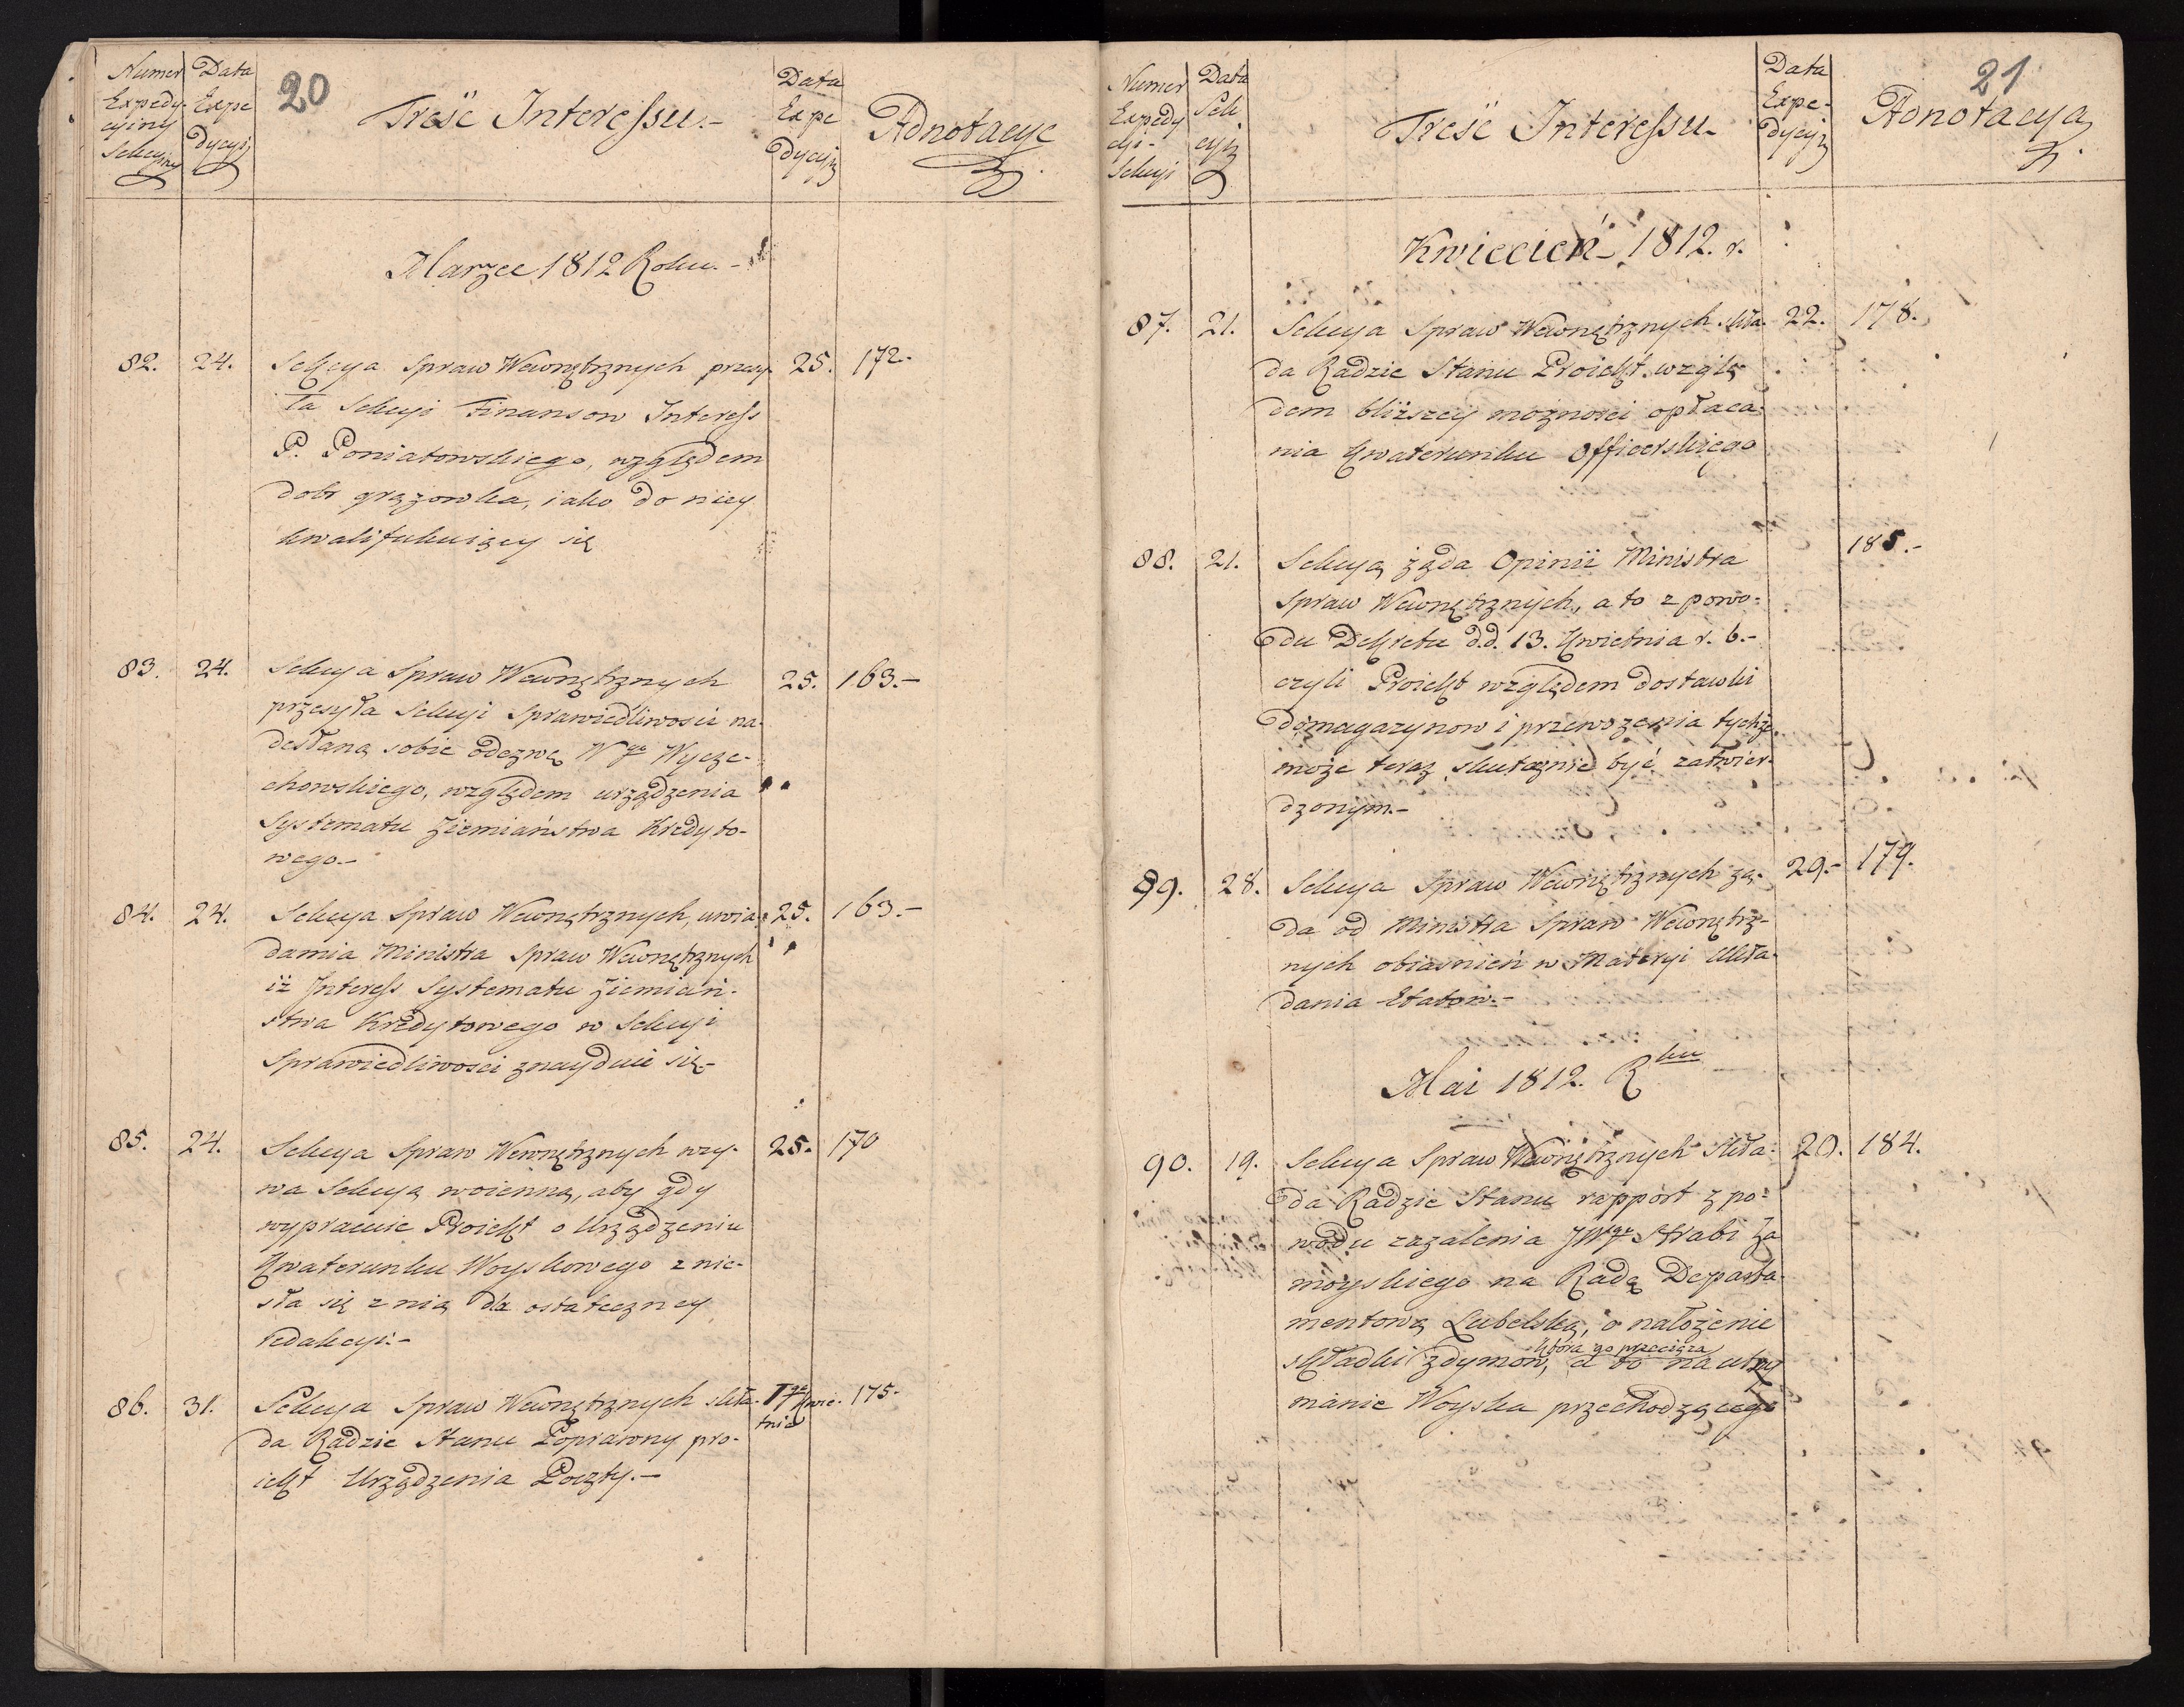 20
Numer Expedycyiny Sekcyiny
Data Expedycyi
Treść Interessu.-
Data Expedycyi
Adnotacye
Marzec 1812 Roku.-
82. 24. Sekcya Spraw Wewnętrznych przesy- 25. 172.
ła Sekcyi Finansow Interess
P. Poniatowskiego, względem
dobr grązowka, iako do niey
kwalifukuiący się
83. 24. Sekcya Spraw Wewnętrznych 25. 163.-
przesyła Sekcyi Sprawiedliwosci na-
desłaną sobie odezwę Wgo Wycze-
chowskiego, względem urządzenia
Systematu Ziemiaństwa Kredyto-
wego.-
84. 24. Sekcya Spraw Wewnętrznych, uwia- 25. 163.-
damia Ministra Spraw Wewnętrznych
iż Interess Systematu Ziemiań-
stwa Kredytowego w Sekcyi
Sprawiedliwosci znayduie się-
85. 24. Sekcya Spraw Wewnętrznych wzy- 25. 170
wa Sekcyą woienną, aby gdy
wypracuie Proiekt o Urządzeniu
Kwaterunku Woyskowego znie-
sła się z nią dla ostateczney
redakcyi.-
86. 31. Sekcya Spraw Wewnętrznych skła- 1go Kwie- 175-
da Radzie Stanu Poprawny pro- tnia
iekt Urządzenia Poczty.-
21
Numer Expedycyi- Sekcyi
Data Sekcyi
Treść Interessu-
Data Expedycyi
Adnotacya
Kwiecień 1812. r.
87. 21. Sekcya Spraw Wewnętrznych skła- 22. 178.
da Radzie Stanu Proiekt wzglę-
dem bliższey możności opłaca-
nia Kwaterunku Officerskiego
88. 21. Sekcya żąda Opinii Ministra 185.-
Spraw Wewnętrznych, a to z powo-
du Dekretu d.d. 13. Kwietnia r. b.-
czyli Proiekt względem dostawki
do magazynow i przewozenia tychże
może teraz skutecznie być zatwier-
dzonym.-
89. 28. Sekcya Spraw Wewnętrznych żą- 29.- 179.
da od Ministra Spraw Wewnętrz-
nych obiasnień w Materyi Ukła-
dania Etatow.-
Mai 1812. Rku
90. 19. Sekcya Spraw Wewnętrznych skła- 20. 184.
da Radzie Stanu rapport z po-
wodu zazalenia JWgo Hrabi Za
moyskiego na Radę Departa-
mentową Lubelską, o nałożenie
która go przeciąża
składki z dymow, a to na utrzy
manie Woyska przechodzącego